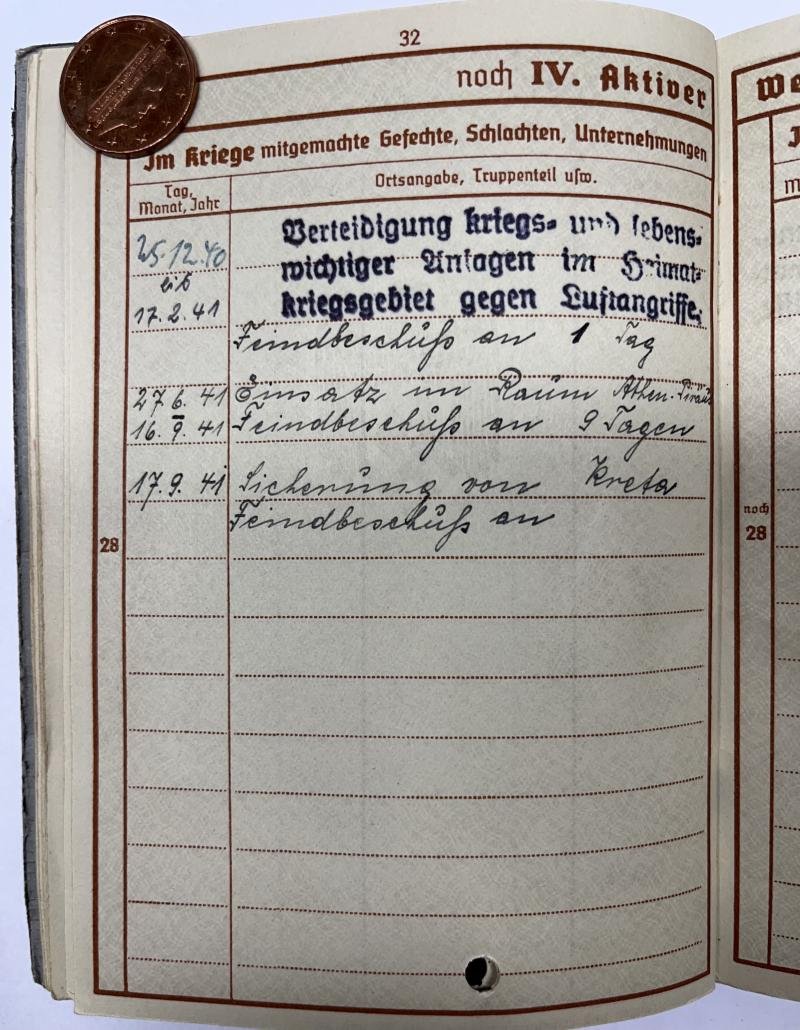 32
noch IV. Aktiver
We
Im Kriege mitgemachte Gefechte, Schlachten, Unternehmungen
Tag, Monat, Jahr
Ortsangabe, Truppenteil usw.
25.12.40
bis
17.2.41
Verteidigung kriegs- und lebens-
wichtiger Anlagen im Heimat-
kriegsgebiet gegen Luftangriffe.
Feindbeschuß an 1 Tag
27.6.41 Einsatz im Raum Athen-Piräus
16.9.41 Feindbeschuß an 9 Tagen
17.9.41 Sicherung von Kreta
Feindbeschuß an
28
noch
28